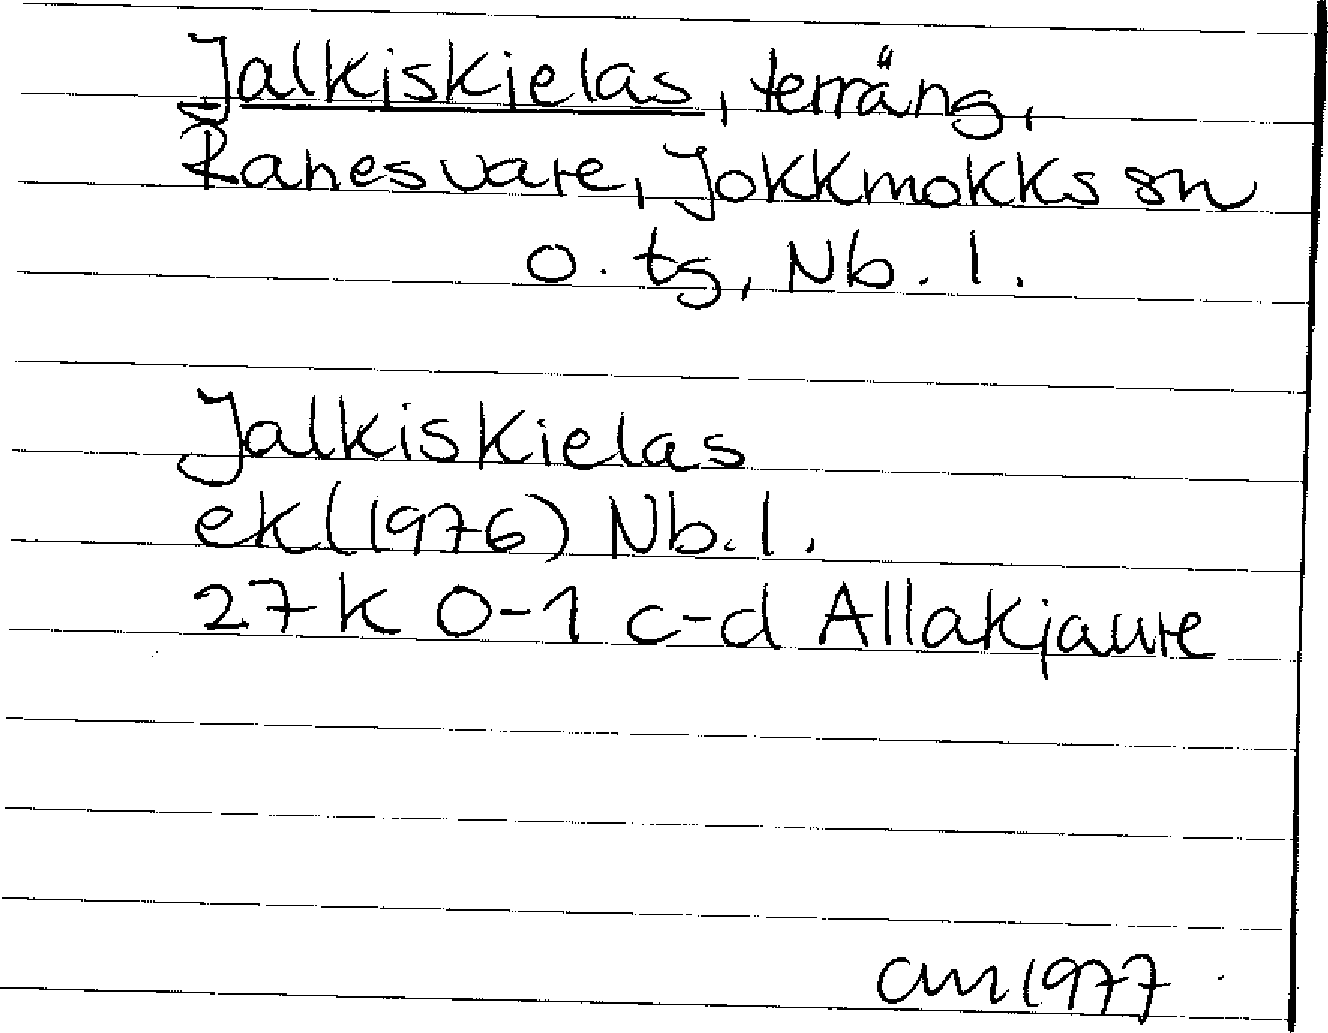 Jalkiskielas, terräng,
Ranesvare, Jokkmokks sn
o. tg, Nb. l.
Jalkiskielas
ek (1976) Nb. l.
27 K 0-1 c-d Allakjaure
1977